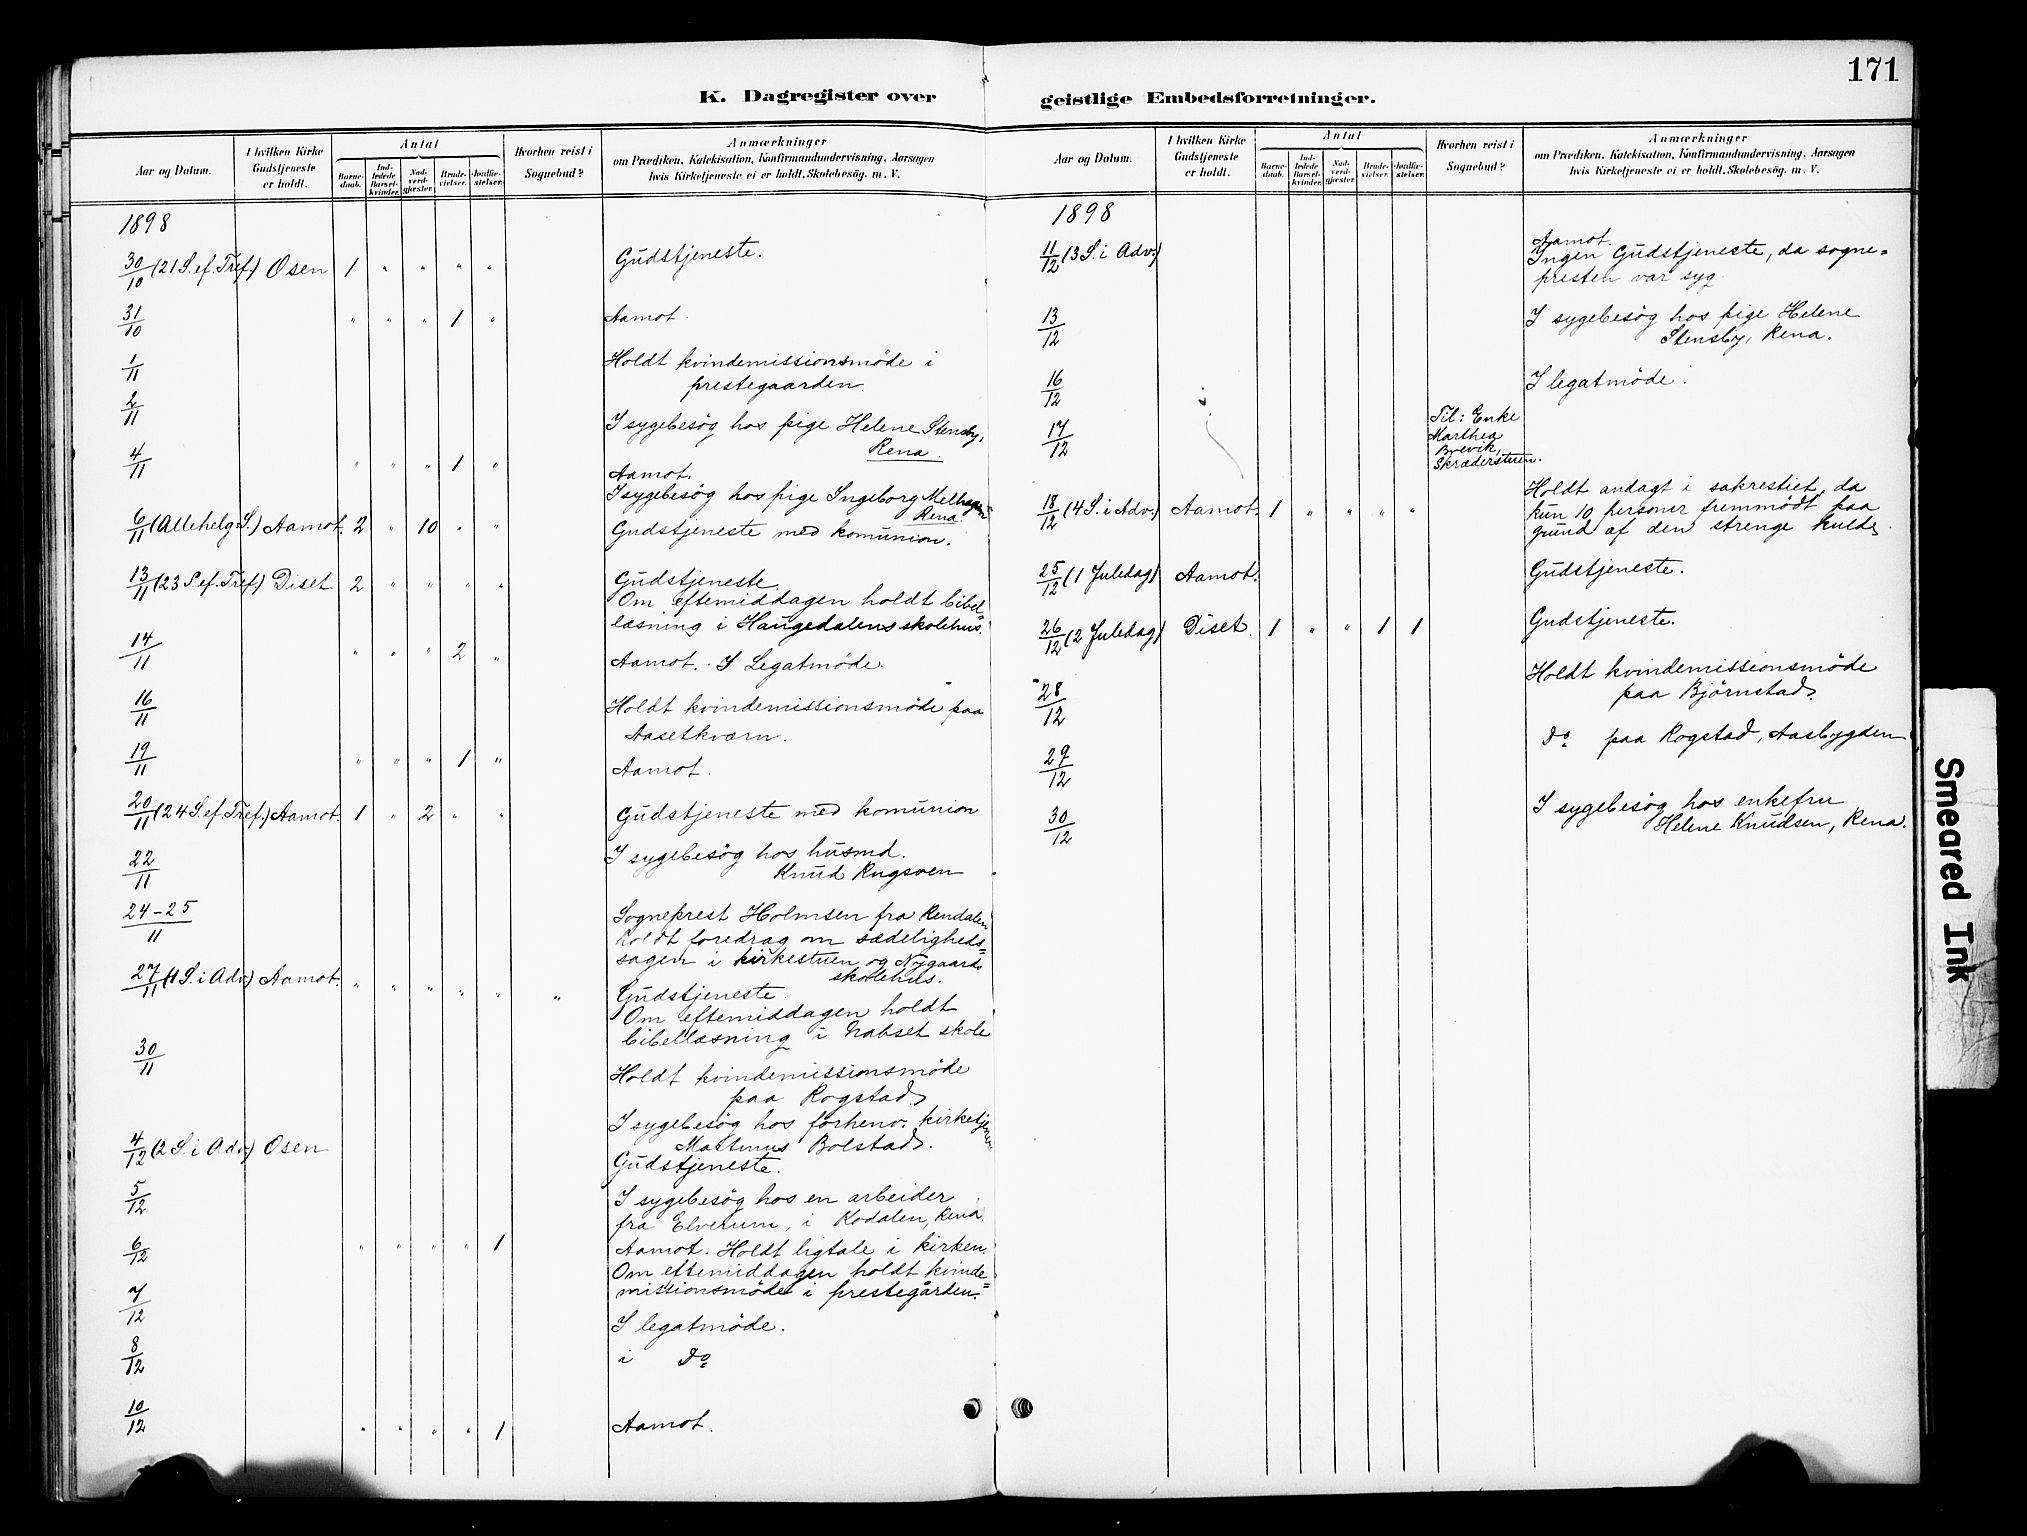 171
K. Dagregister over
Aar og Datum.
I hvilken Kirke Gudstjeneste er holdt.
Antal
Barnedaab.
Indledede Barselkvinder.
Nadverdgjester.
Brudevielser.
Jordfæstelser.
Hvorhen reist i Sognebud?
Anmærkninger
om Prædiken, Katekisation, Konfirmandundervisning, Aarsagen
hvis Kirketjeneste ei er holdt, Skolebesøg. m. V.
1898
30/10 (21 S. ef. Tref.) Osen 1 " " " " Gudstjeneste.
31/10 " " " 1 " Aamot.
1/11 Holdt kvindemissionsmöde i
prestegaarden.
2/11 I sygebesög hos pige Helene Stensby,
Rena.
4/11 " " " 1 " Aamot.
I sygebesög hos pige Ingeborg Melhagen
Rena
6/11 (Allehelg. S.) Aamot. 2 " 10 " " Gudstjeneste med komunion.
13/11 (23 S ef. Tref.) Diset 2 " " " " Gudstjeneste
Om eftemiddagen holdt bibel=
læsning i Haugedalens skolehus.
14/11 " " " 2 " Aamot. I Legatmöde.
16/11 Holdt kvindemissionsmöde paa
Aasetkværn.
19/11 " " " 1 " Aamot.
20/11 (24 S. ef. Tref.) Aamot. 1 " 2 " " Gudstjeneste med komunion
22/11 I sygebesög hos husmd.
Knud Rugsveen
24-25/11 Sogneprest Holmsen fra Rendalen
holdt foredrag om sædeligheds=
sagen i kirkestuen og Nygaards
skolehus.
27/11 (1 S. i Adv.) Aamot. " " " " " " Gudstjeneste.
Om eftemiddagen holdt
bibellæsning i Nabset skole
30/11 Holdt kvindemissionsmöde
paa Rogstad.
I sygebesög hos forhenv. kirketjener
Martinus Bolstad.
4/12 (2 S. i Adv.) Osen Gudstjeneste.
5/12 I sygebesög hos en arbeider
fra Elverum, i Kodalen, Rena.
6/12 " " " " 1 Aamot. Holdt ligtale i kirken.
Om eftemiddagen holdt kvinde=
missionsmöde i prestegården.
7/12 I legatmöde.
8/12 i Do
10/12 " " " " 1 Aamot.
geistlige Embedsforretninger.
Aar og Datum.
I hvilken Kirke Gudstjeneste er holdt.
Antal
Barnedaab.
Indledede Barselkvinder.
Nadverdgjester.
Brudevielser.
Jordfæstelser.
Hvorhen reist i Sognebud?
Anmærkninger
om Prædiken, Katekisation, Konfirmandundervisning, Aarsagen
hvis Kirketjeneste ei er holdt, Skolebesøg. m. V.
1898
11/12 (3 S. i Adv.) Aamot.
Ingen Gudstjeneste, da sogne=
presten var syg
13/12 I sygebesög hos pige Helene
Stensby, Rena.
16/12 I legatmöde.
17/12 Til: Enke
Marthea
Brevik,
Skræderstuen.
18/12 (4 S. i Adv.) Aamot. 1 " " " " Holdt andagt i sakrestiet, da
kun 10 personer fremmödt paa
grund af den strenge kulde.
25/12 (1 Juledag) Aamot. Gudstjeneste.
26/12 (2 Juledag) Diset. 1 " " 1 1 Gudstjeneste.
28/12 Holdt kvindemissionsmöde
paa Björnstad.
29/12 Do paa Rogstad, Aasbygden
30/12 I sygebesög hos enkefru
Helene Knudsen, Rena.
Smeared Ink